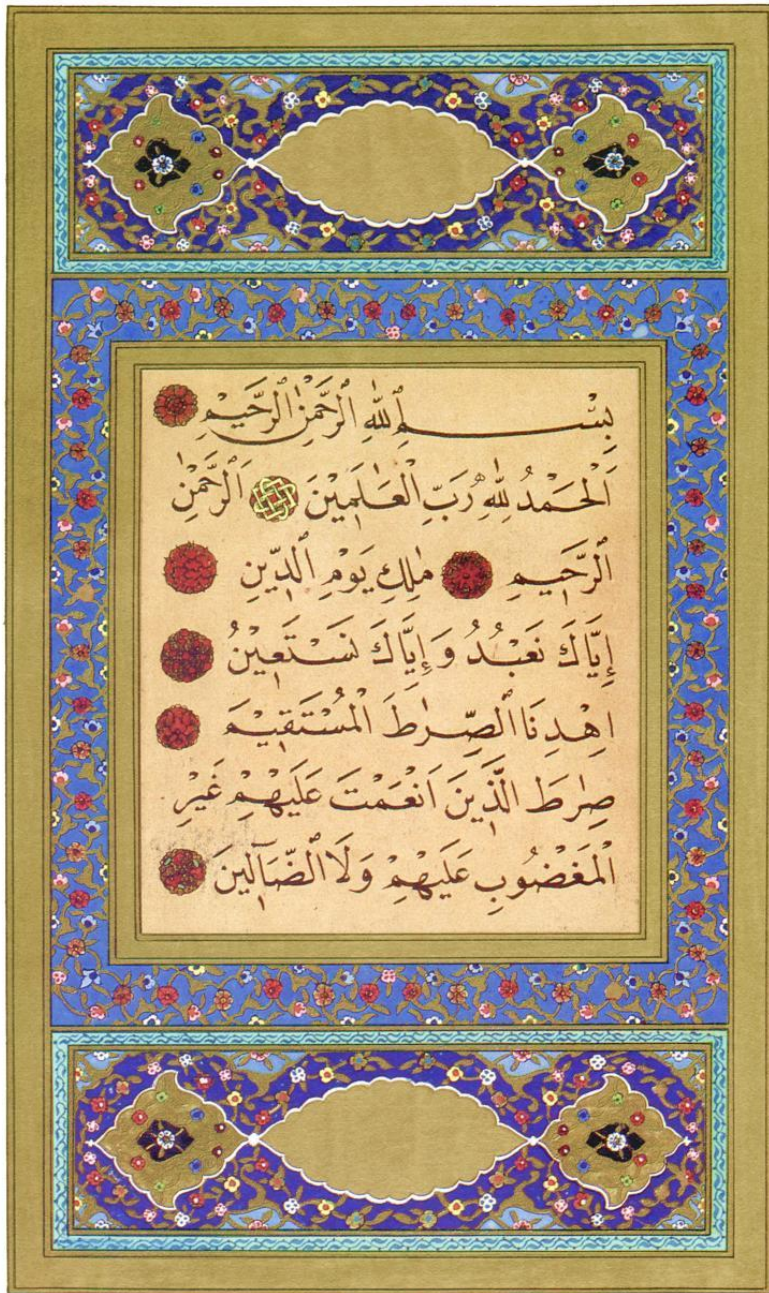 بِسْمِ ٱللّٰهِ ٱلرَّحْمٰنِ ٱلرَّحِيمِ
اَلْحَمْدُ لِلّٰهِ رَبِّ ٱلْعَالَمِينَ اَلرَّحْمٰنِ
ٱلرَّحِيمِ مٰلِكِ يَوْمِ ٱلدِّينِ
إِيَّاكَ نَعْبُدُ وَإِيَّاكَ نَسْتَعِينُ
اِهْدِنَا ٱلصِّرٰطَ ٱلْمُسْتَقِيمَ
صِرٰطَ ٱلَّذِينَ اَنْعَمْتَ عَلَيْهِمْ غَيْرِ
ٱلْمَغْضُوبِ عَلَيْهِمْ وَلَا ٱلضَّآلِّينَ